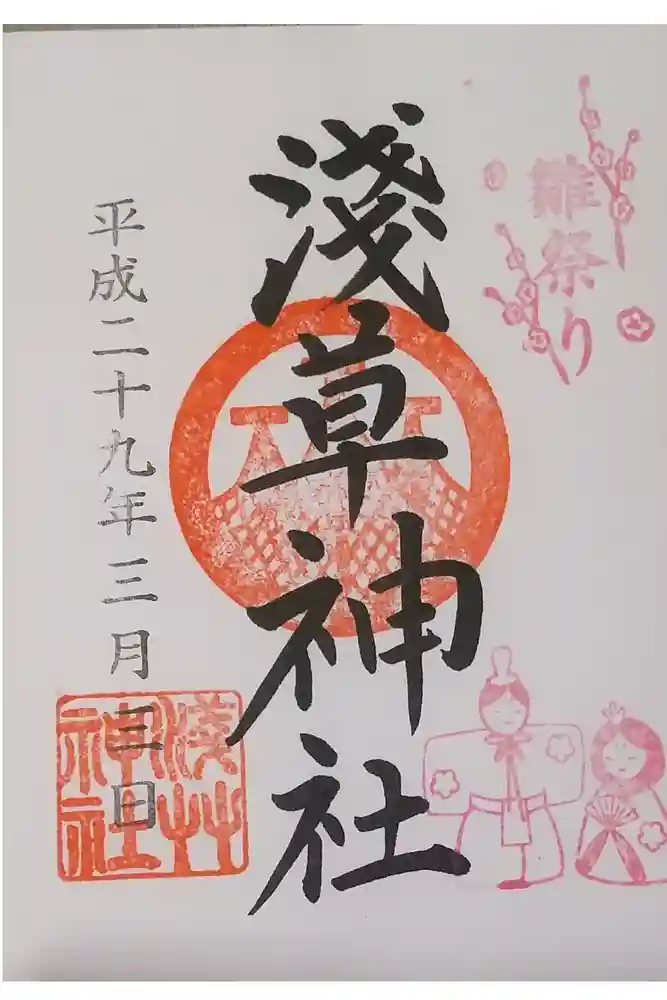 雛祭り
淺草神社
平成二十九年三月三日
淺艸
神社